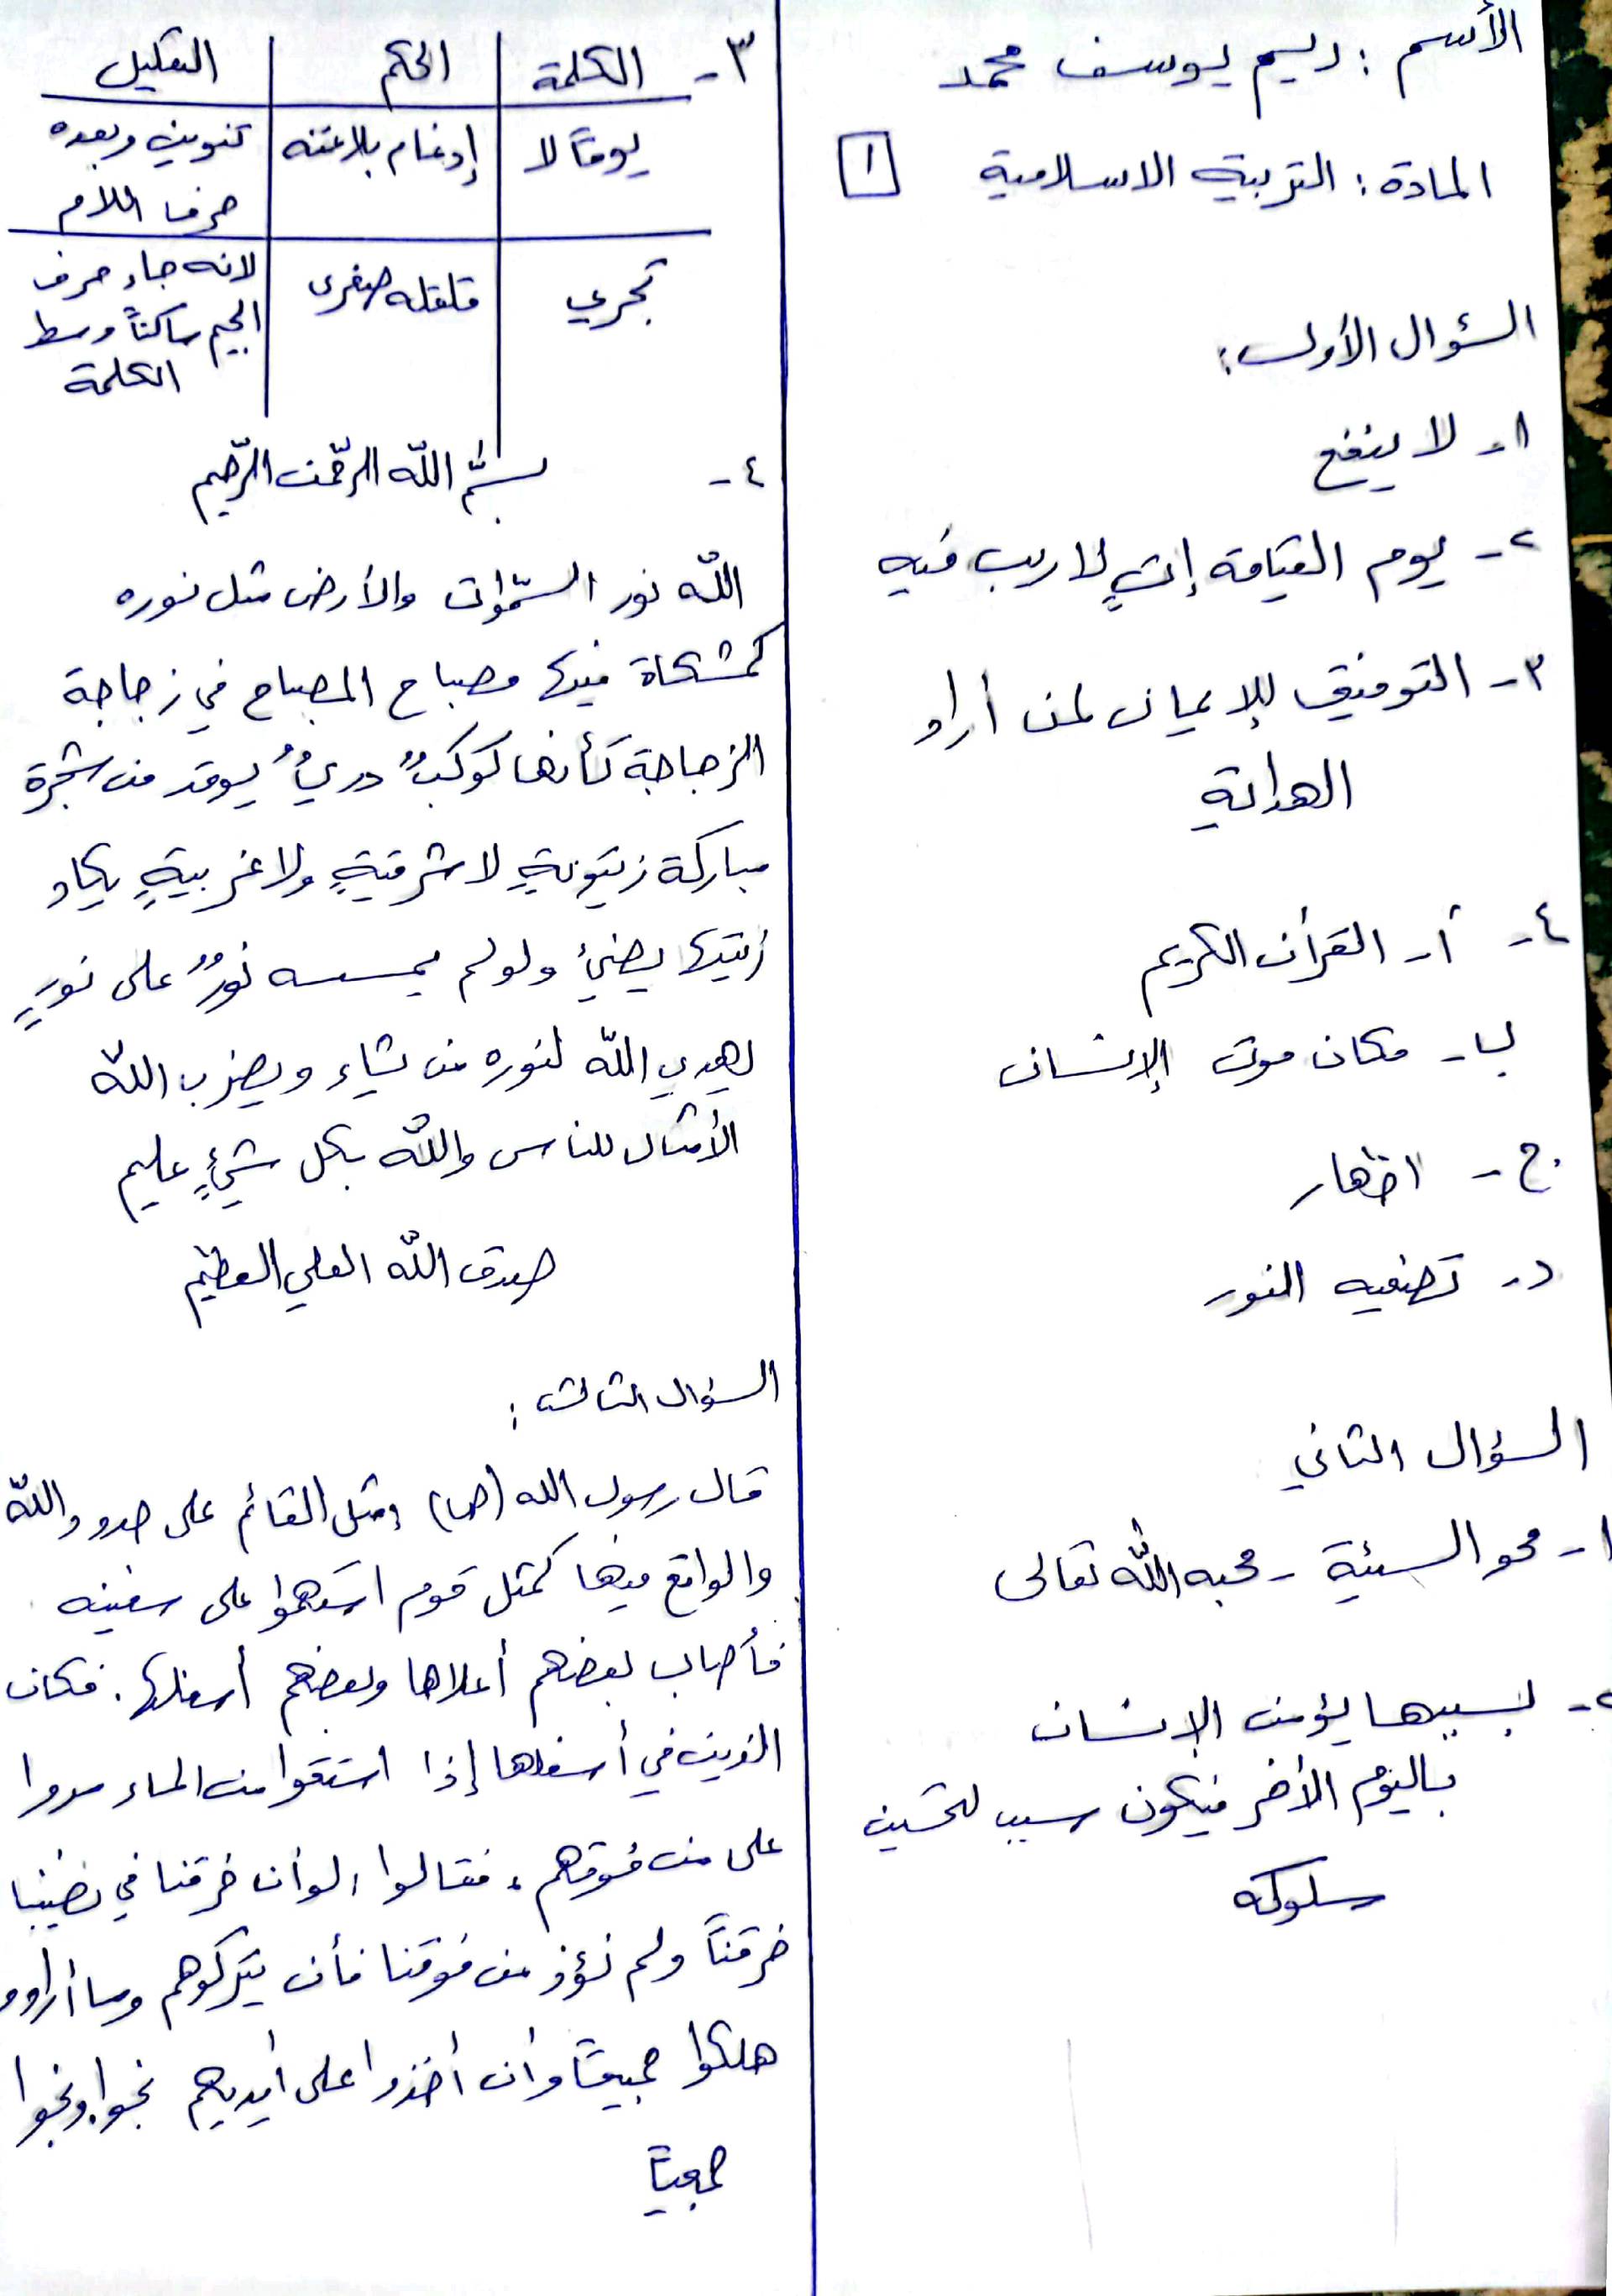 الأسم : ريم يوسف محمد
المادة : التربية الاسلامية
١
السؤال الأول :
١- لا ينفع
٢- يوم القيامة إتٍ لا ريب فيه
٣- التوفيق للإيمان لمن أراد
الهداية
٤- أ- القرأن الكريم
ب- مكان موت الإنسان
ج- اظهار
د- تضعيه النور
السؤال الثاني
١- محو السيئة - محبه الله تعالى
٢- بسببها يؤمن الإنسان
باليوم الأخر فيكون سبب لتحسين
سلوكه
٣- الكلمة الحكم التعليل
يوماً لا إدغام بلا غنه تنوين وبعده
حرف اللام
تجري قلقله صغرى لانه جاء حرف
الجيم ساكناً وسط
الكلمة
٤- بسم الله الرحمن الرحيم
الله نور السموات والأرض مثل نوره
كمشكاة فيها مصباح المصباح في زجاجة
الزجاجة كأنها كوكبٌ دريٌ يوقد من شجرة
مباركة زيتونةٍ لا شرقيةٍ ولا غربيةٍ يكاد
زيتها يضيئ ولو لم يمسسه نورٌ على نورٍ
يهدي الله لنوره من يشاء ويضرب الله
الأمثال للناس والله بكل شيءٍ عليم
صدق الله العلي العظيم
السؤال الثالث :
قال رسول الله (ص) مثل القائم على حدود الله
والواقع فيها كمثل قوم استهموا على سفينه
فأصاب بعضهم أعلاها وبعضهم أسفلها. فكان
الذين في أسفلها إذا استقوا من الماء مروا
على من فوقهم، فقالوا لو أن خرقنا في نصيبنا
خرقناً ولم نؤذ من فوقنا فأن يتركوهم وما أرادوا
هلكوا جميعاً وأن أخذوا على أيديهم نجوا ونجوا
جميعاً